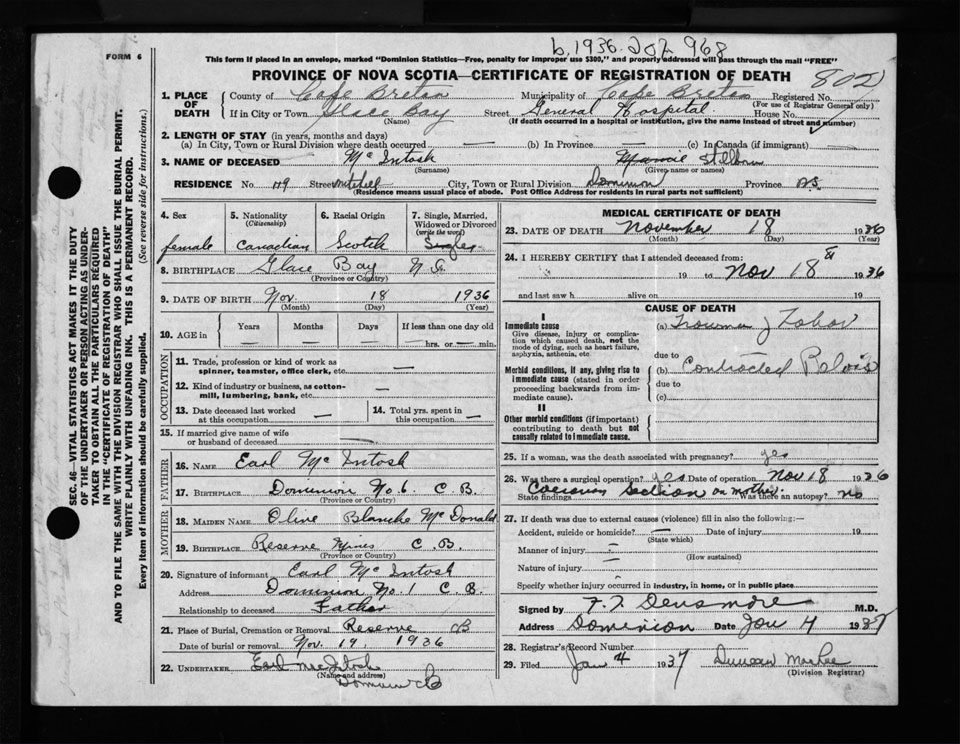 b.1936.
968
FORM 6
This form if placed in an envelope, marked "Dominion Statistics—Free, penalty for improper use $300," and properly addressed will pass through the mail "FREE"
PROVINCE OF NOVA SCOTIA—CERTIFICATE OF REGISTRATION OF DEATH
802
1. PLACE OF DEATH
County of Cape Breton Municipality of Cape Breton Registered No.
(For use of Registrar General only)
If in City or Town Glace Bay Street General Hospital House No.
(Name) (If death occurred in a hospital or institution, give the name instead of street and number)
2. LENGTH OF STAY (in years, months and days)
(a) In City, Town or Rural Division where death occurred — (b) In Province — (c) In Canada (if immigrant) —
3. NAME OF DECEASED Mc Intosh Stillborn
(Surname) (Given name or names)
RESIDENCE No 119 Street Mitchell City, Town or Rural Division Dominion Province N.S.
(Residence means usual place of abode. Post Office Address for residents in rural parts not sufficient)
4. Sex female
5. Nationality (Citizenship) Canadian
6. Racial Origin Scotch
7. Single, Married, Widowed or Divorced (write the word) Single
8. BIRTHPLACE Glace Bay N.S.
(Province or Country)
9. DATE OF BIRTH Nov. 18 1936
(Month) (Day) (Year)
10. AGE in Years Months Days If less than one day old
— — — —hrs. or — min.
OCCUPATION
11. Trade, profession or kind of work as spinner, teamster, office clerk, etc. —
12. Kind of industry or business, as cotton-mill, lumbering, bank, etc. —
13. Date deceased last worked at this occupation —
14. Total yrs. spent in this occupation —
15. If married give name of wife or husband of deceased —
FATHER
16. NAME Earl Mc Intosh
17. BIRTHPLACE Dominion No. 6. C. B.
(Province or Country)
MOTHER
18. MAIDEN NAME Olive Blanche Mc Donald
19. BIRTHPLACE Reserve Mines C. B.
(Province or Country)
20. Signature of informant Earl Mc Intosh
Address Dominion No. 1 C. B.
Relationship to deceased Father
21. Place of Burial, Cremation or Removal Reserve CB
Date of burial or removal Nov. 19 1936
22. UNDERTAKER Earl McIntosh
(Name and address)
Dominion CB
MEDICAL CERTIFICATE OF DEATH
23. DATE OF DEATH November 18 1936
(Month) (Day) (Year)
24. I HEREBY CERTIFY that I attended deceased from:
19 to Nov 18 1936
and last saw h alive on 19
CAUSE OF DEATH
I
Immediate cause
Give disease, injury or complication which caused death, not the mode of dying, such as heart failure, asphyxia, asthenia, etc.
(a)
due to
Morbid conditions, if any, giving rise to immediate cause (stated in order proceeding backwards from immediate cause).
(b) Contracted Pelvis
due to
(c)
II
Other morbid conditions (if important) contributing to death but not causally related to immediate cause.
25. If a woman, was the death associated with pregnancy? yes
26. Was there a surgical operation? yes Date of operation Nov 18 1936
State findings Caesarian Section on mother. Was there an autopsy? no
27. If death was due to external causes (violence) fill in also the following:—
Accident, suicide or homicide? — Date of injury 19
(State which)
Manner of injury —
(How sustained)
Nature of injury —
Specify whether injury occurred in industry, in home, or in public place
Signed by F. T. Densmore M.D.
Address Dominion Date Jan 4 1937
28. Registrar's Record Number
29. Filed Jan 4 1937 Duncan
(Division Registrar)
SEC. 46—VITAL STATISTICS ACT MAKES IT THE DUTY
OF THE UNDERTAKER OR PERSON ACTING AS UNDER-
TAKER TO OBTAIN ALL THE PARTICULARS REQUIRED
IN THE "CERTIFICATE OF REGISTRATION OF DEATH"
AND TO FILE THE SAME WITH THE DIVISION REGISTRAR WHO SHALL ISSUE THE BURIAL PERMIT.
WRITE PLAINLY WITH UNFADING INK. THIS IS A PERMANENT RECORD.
Every item of information should be carefully supplied. (See reverse side for instructions.)